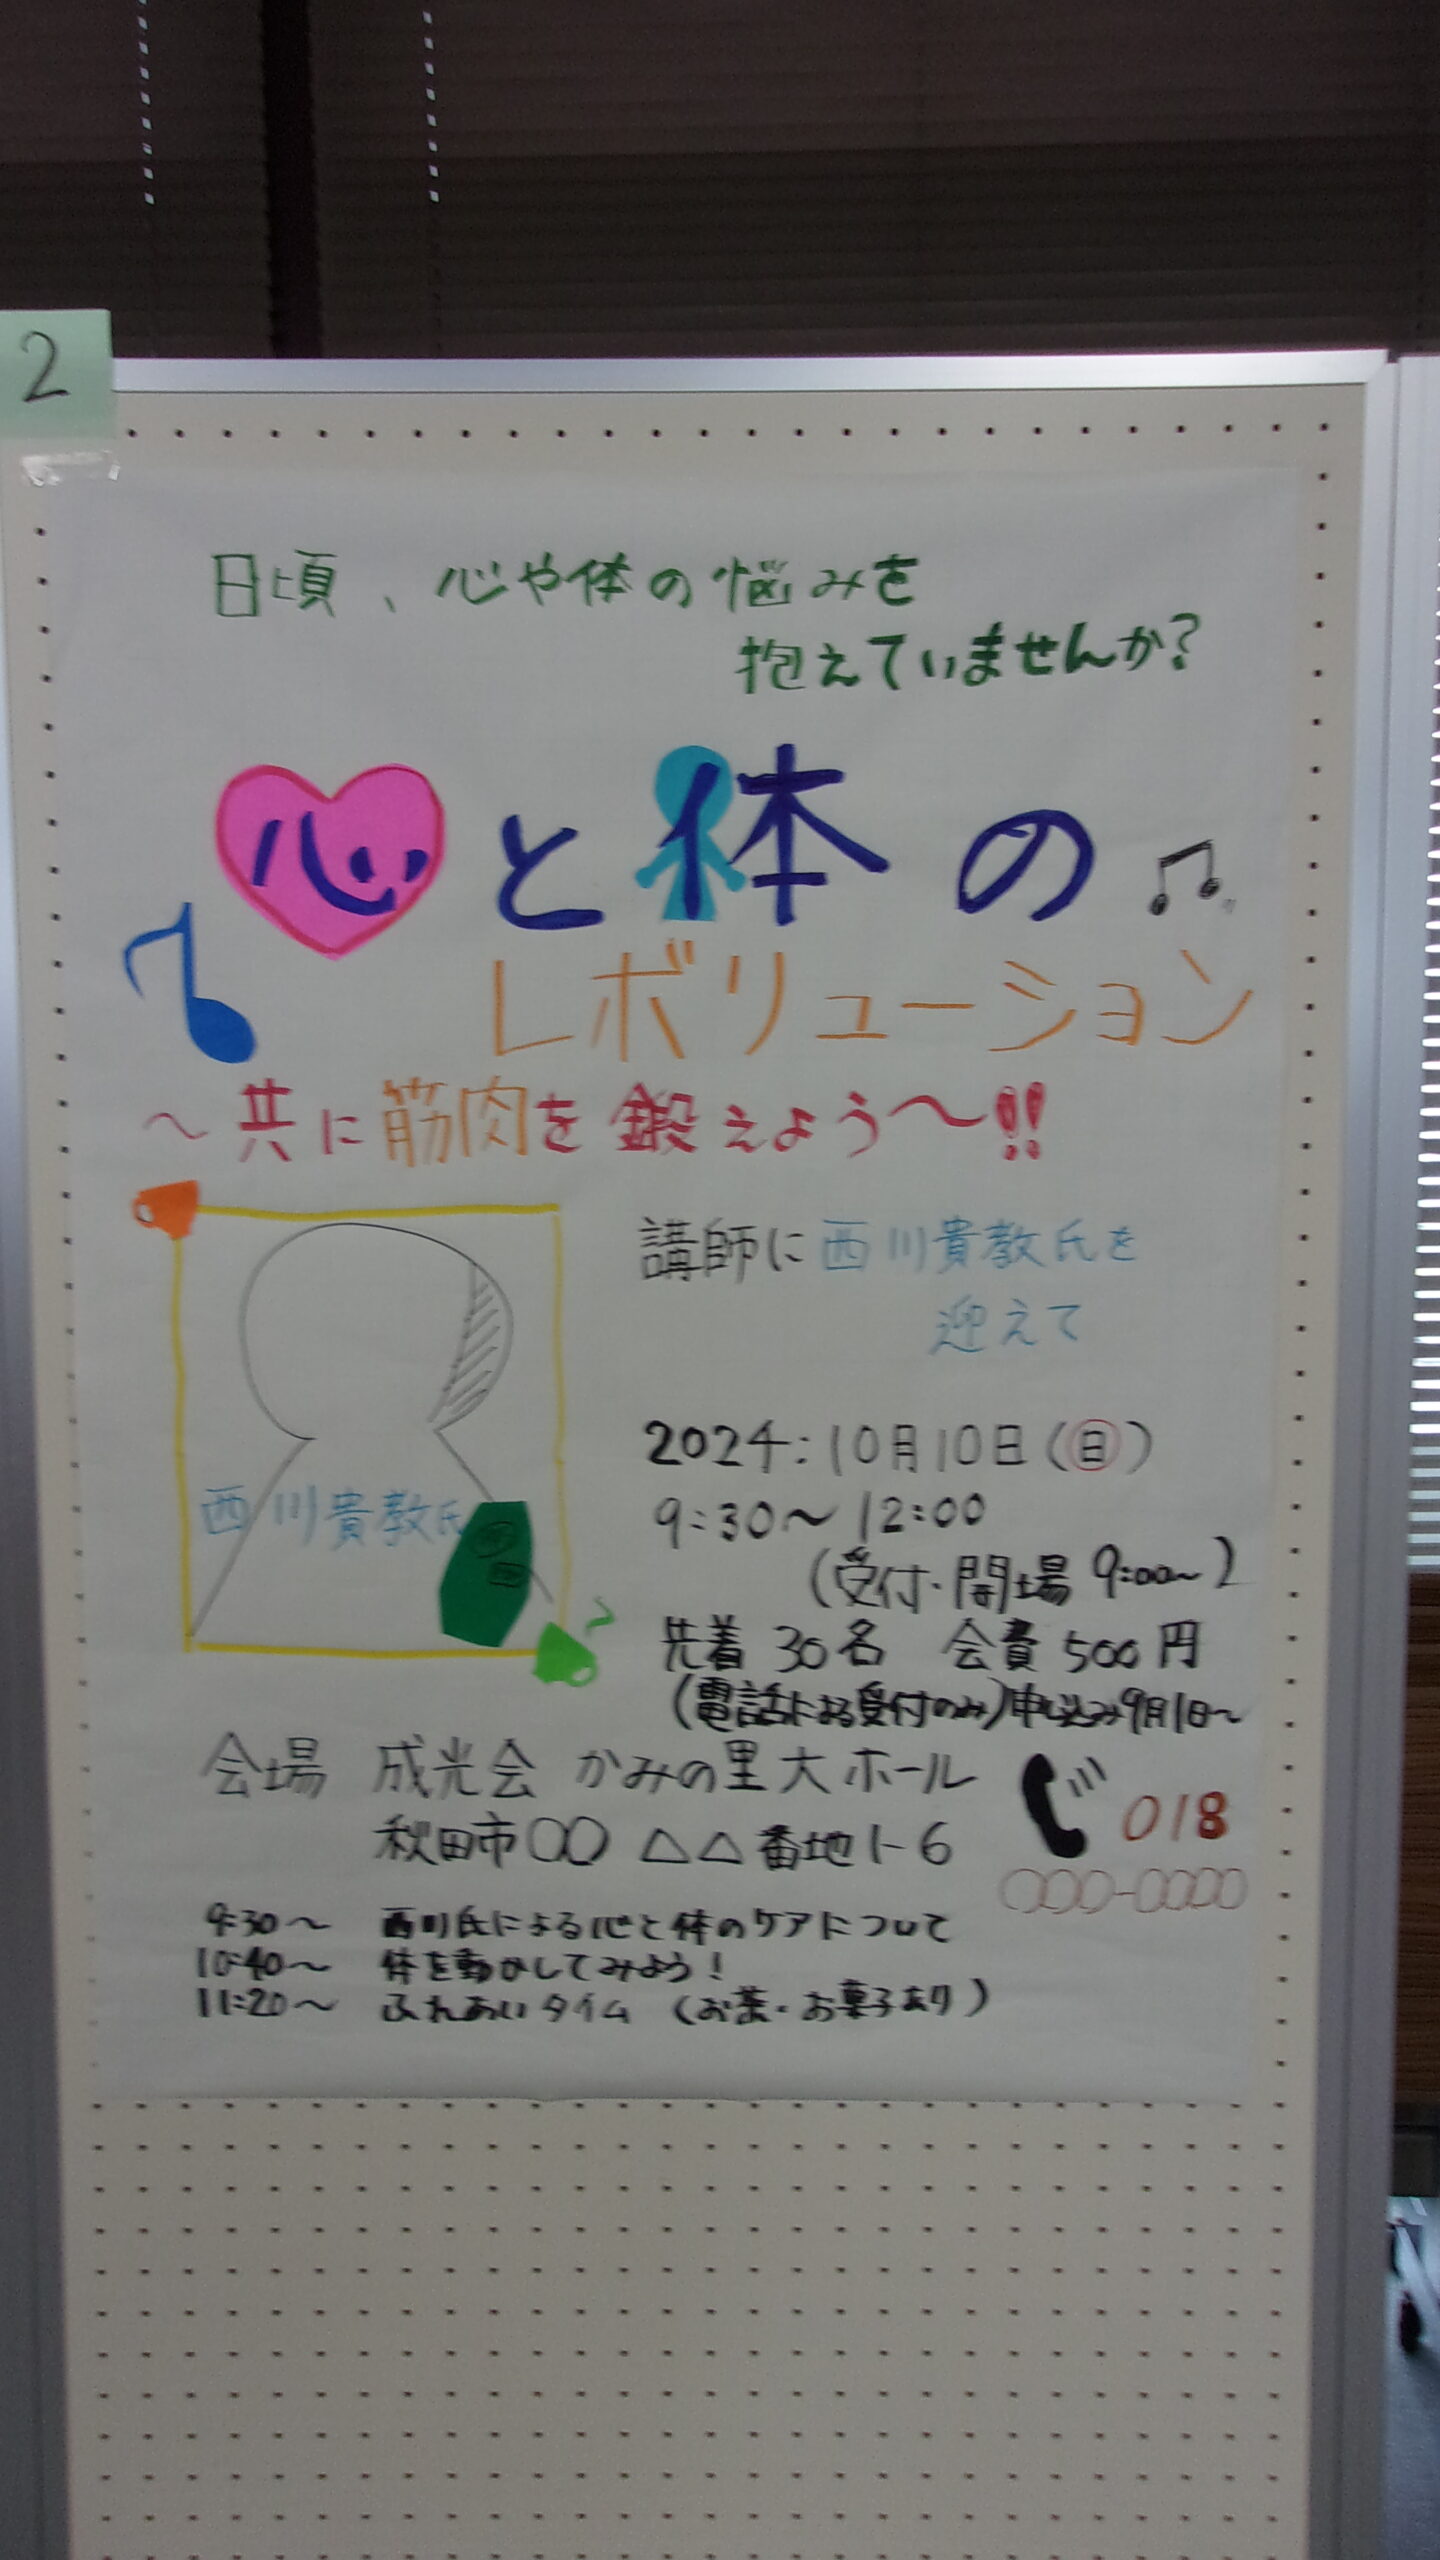 2
日頃、心や体の悩みを
抱えていませんか?
心と体の
レボリューション
～共に筋肉を鍛えよう～!!
講師に西川貴教氏を
迎えて
西川貴教氏
2024:10月10日(日)
9:30～12:00
(受付・開場 9:00～)
先着 30名 会費 500円
(電話による受付のみ)申し込み9月1日～
会場 成光会 かみの里大ホール
秋田市○○ △△番地1-6
018
○○○-○○○○
9:30～ 西川氏による心と体のケアについて
10:40～ 体を動かしてみよう!
11:20～ ふれあいタイム (お茶・お菓子あり)